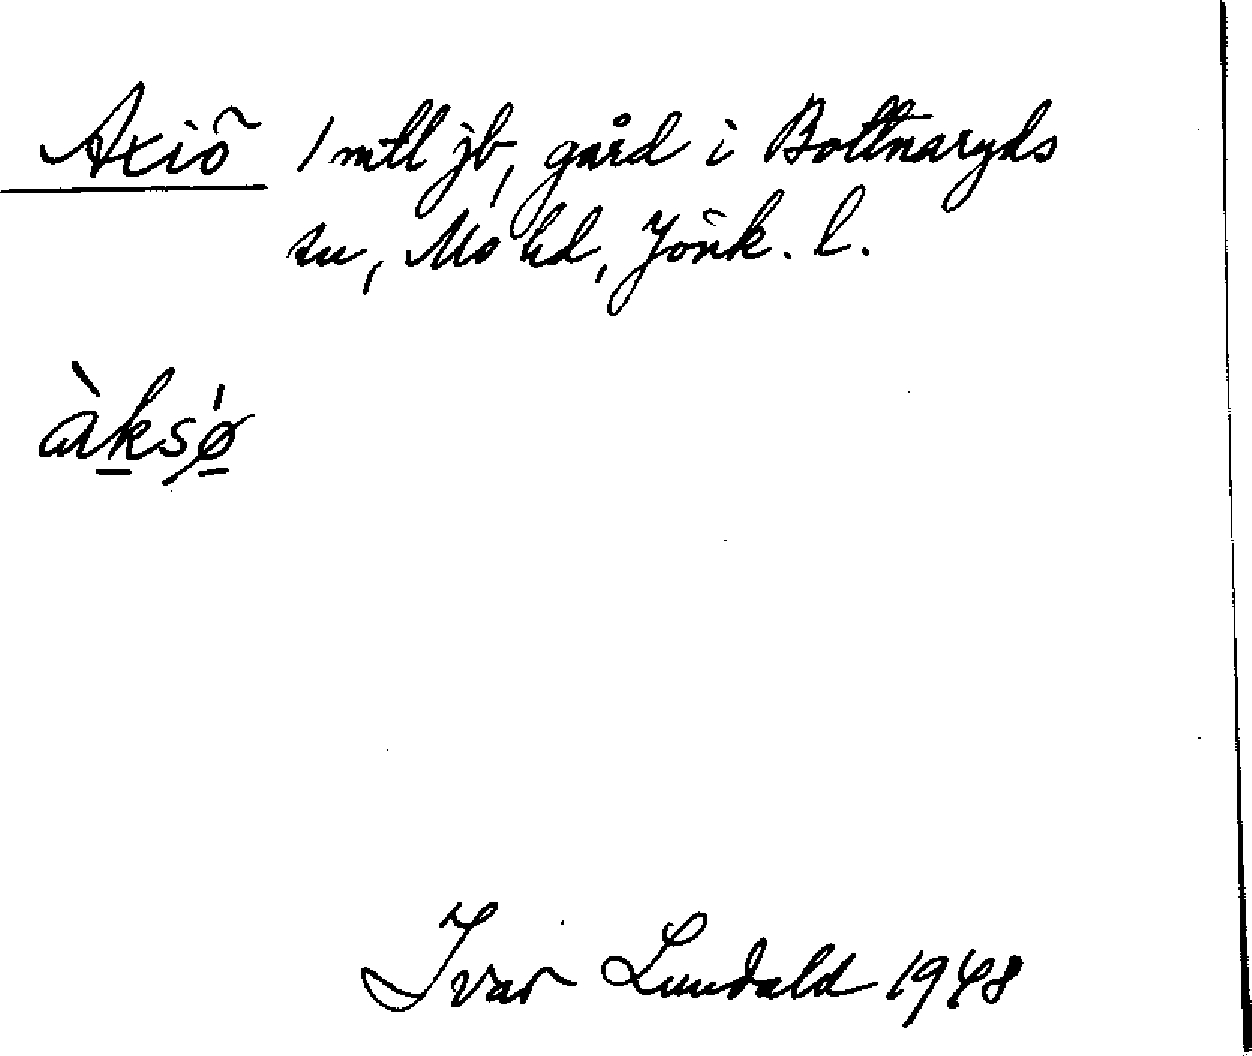 Axiö 1 mtl jb, gård i Bottnaryds
sn, Mo hd, Jönk. l.
àksǿ
Ivar Lundald 1948